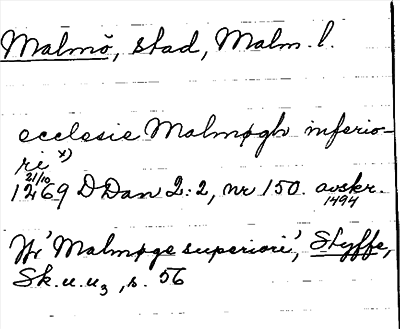 Malmö, stad, Malm. l.
ecclesie Malmøgh inferio-
ri x)
21/10
1269 D Dan 2:2, nr 150. avskr.
1494
Jfr 'Malmøge superiori', Styffe,
Sk. u. u3, s. 56